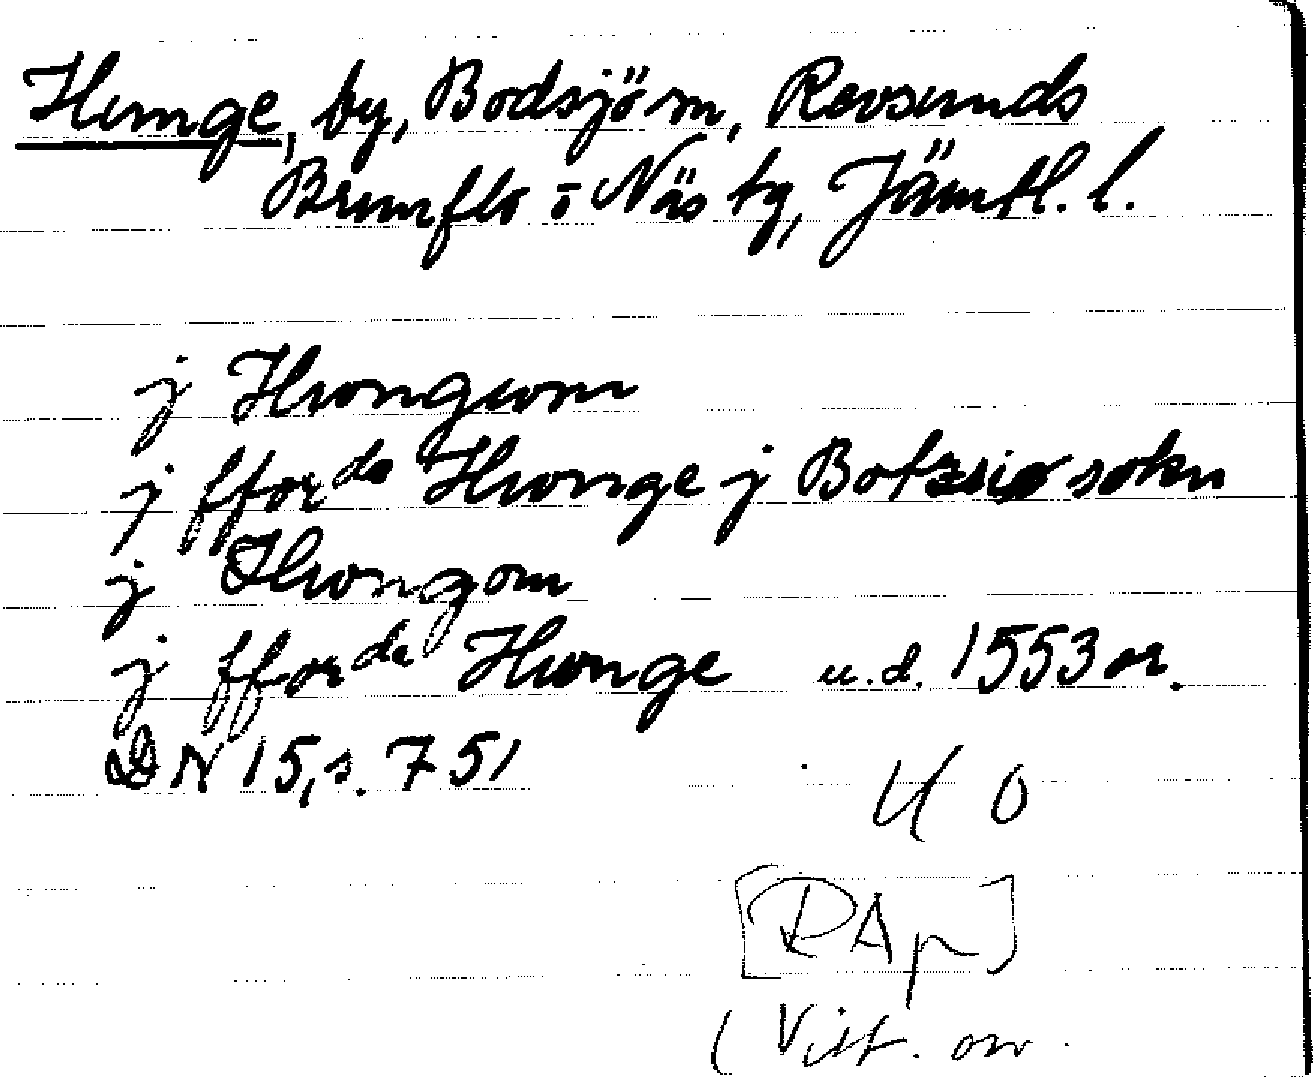 Hunge, by, Bodsjö sn, Revsunds
Brunflo o Näs tg, Jämtl. l.
j Hwongwm
j fforda Hwonge j Botzsiø sokn
j Hwongom
j fforda Hwnge u.d. 1553 or.
DN 15, s. 751
U O
[RAp]
(Vitt. or.